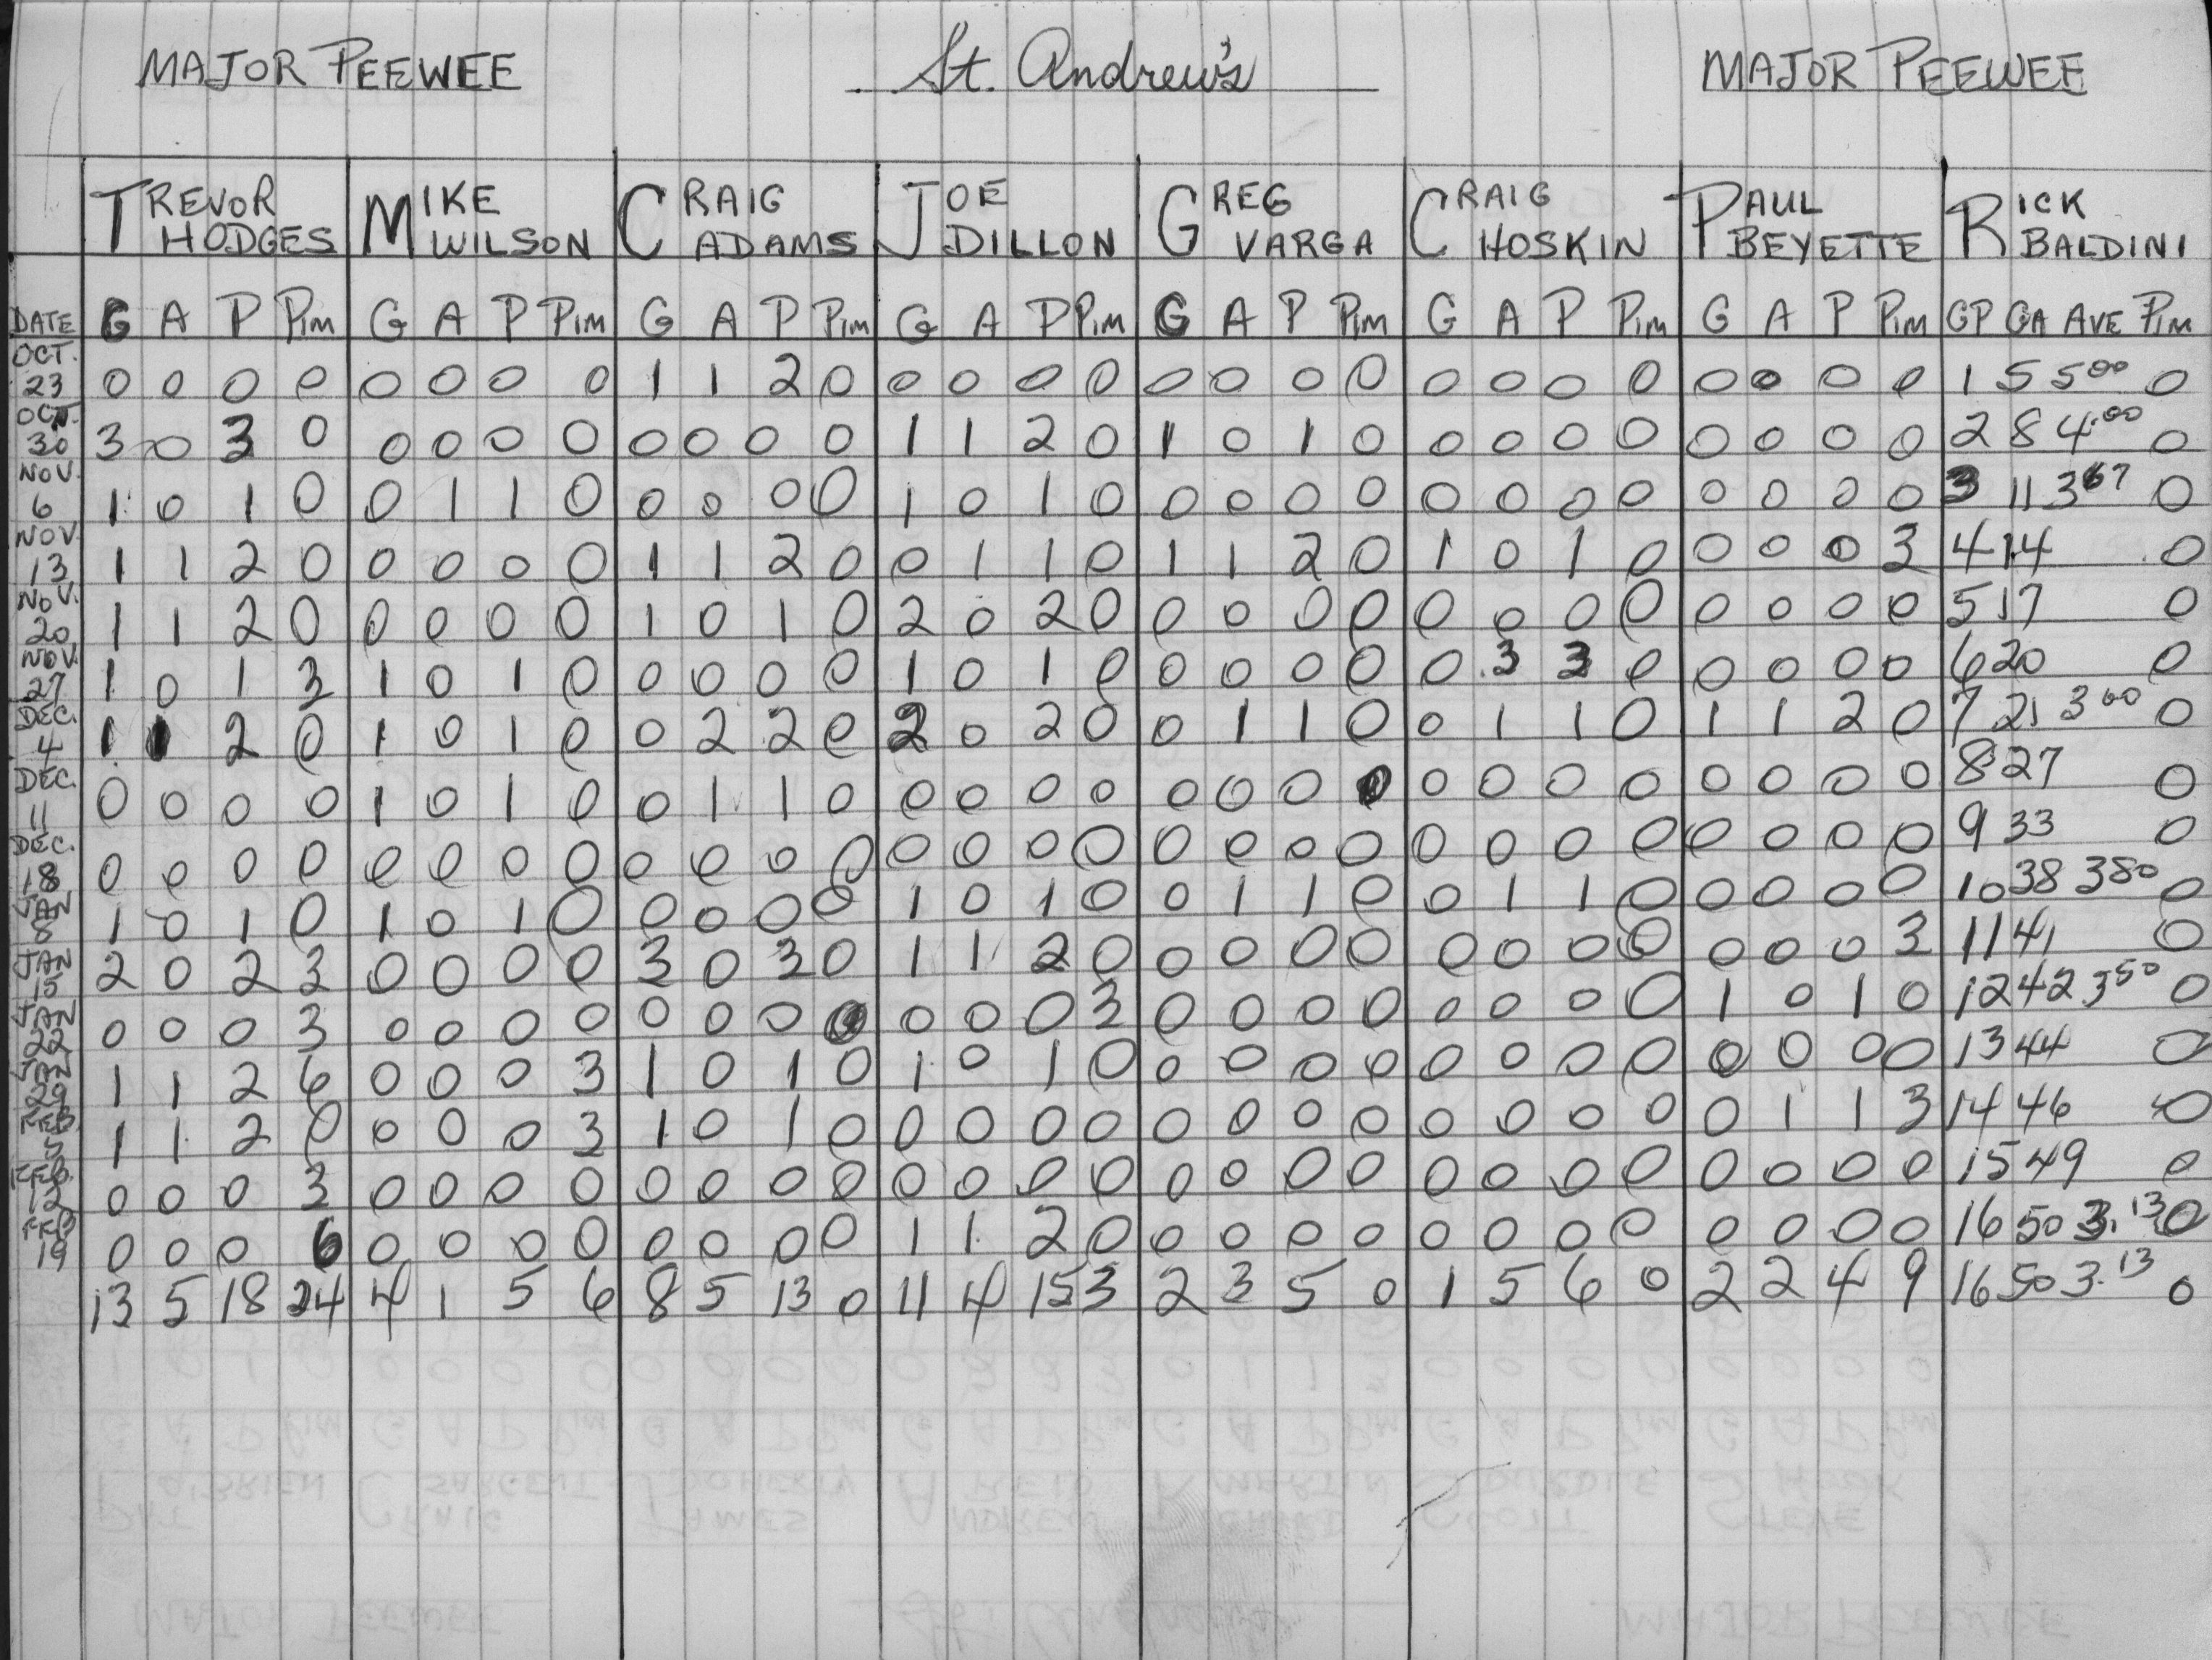 MAJOR PEEWEE St. Andrew's MAJOR PEEWEE
TREVOR MIKE CRAIG JOE GREG CRAIG PAUL RICK
HODGES WILSON ADAMS DILLON VARGA HOSKIN BEYETTE BALDINI
DATE G A P PIM G A P PIM G A P PIM G A P PIM G A P PIM G A P PIM G A P PIM GP GA AVE PIM
OCT. 23 0 0 0 0 0 0 0 0 1 1 2 0 0 0 0 0 0 0 0 0 0 0 0 0 0 0 0 0 1 5 5.00 0
OCT. 30 3 0 3 0 0 0 0 0 0 0 0 0 1 1 2 0 1 0 1 0 0 0 0 0 0 0 0 0 2 8 4.00 0
NOV. 6 1 0 1 0 0 1 1 0 0 0 0 0 1 0 1 0 0 0 0 0 0 0 0 0 0 0 0 0 3 11 3 67 0
NOV. 13 1 1 2 0 0 0 0 0 1 1 2 0 0 1 1 0 1 1 2 0 1 0 1 0 0 0 0 3 4 14 0
NOV. 20 1 1 2 0 0 0 0 0 1 0 1 0 2 0 2 0 0 0 0 0 0 0 0 0 0 0 0 0 5 17 0
NOV. 27 1 0 1 3 1 0 1 0 0 0 0 0 1 0 1 0 0 0 0 0 0 3 3 0 0 0 0 0 6 20 0
DEC. 4 1 1 2 0 1 0 1 0 0 2 2 0 2 0 2 0 0 1 1 0 0 1 1 0 1 1 2 0 7 21 3 00 0
DEC. 11 0 0 0 0 1 0 1 0 0 1 1 0 0 0 0 0 0 0 0 0 0 0 0 0 0 0 0 0 8 27 0
DEC. 18 0 0 0 0 0 0 0 0 0 0 0 0 0 0 0 0 0 0 0 0 0 0 0 0 0 0 0 0 9 33 0
JAN 8 1 0 1 0 1 0 1 0 0 0 0 0 1 0 1 0 0 1 1 0 0 1 1 0 0 0 0 0 10 38 3 80 0
JAN 15 2 0 2 3 0 0 0 0 3 0 3 0 1 1 2 0 0 0 0 0 0 0 0 0 0 0 0 3 11 41 0
JAN 22 0 0 0 3 0 0 0 0 0 0 0 0 0 0 0 3 0 0 0 0 0 0 0 0 1 0 1 0 12 42 3 50 0
JAN 29 1 1 2 6 0 0 0 3 1 0 1 0 1 0 1 0 0 0 0 0 0 0 0 0 0 0 0 0 13 44 0
FEB 5 1 1 2 0 0 0 0 3 1 0 1 0 0 0 0 0 0 0 0 0 0 0 0 0 0 1 1 3 14 46 0
FEB. 12 0 0 0 3 0 0 0 0 0 0 0 0 0 0 0 0 0 0 0 0 0 0 0 0 0 0 0 0 15 49 0
FEB 19 0 0 0 6 0 0 0 0 0 0 0 0 1 1 2 0 0 0 0 0 0 0 0 0 0 0 0 0 16 50 3.13 0
13 5 18 24 4 1 5 6 8 5 13 0 11 4 15 3 2 3 5 0 1 5 6 0 2 2 4 9 16 50 3.13 0